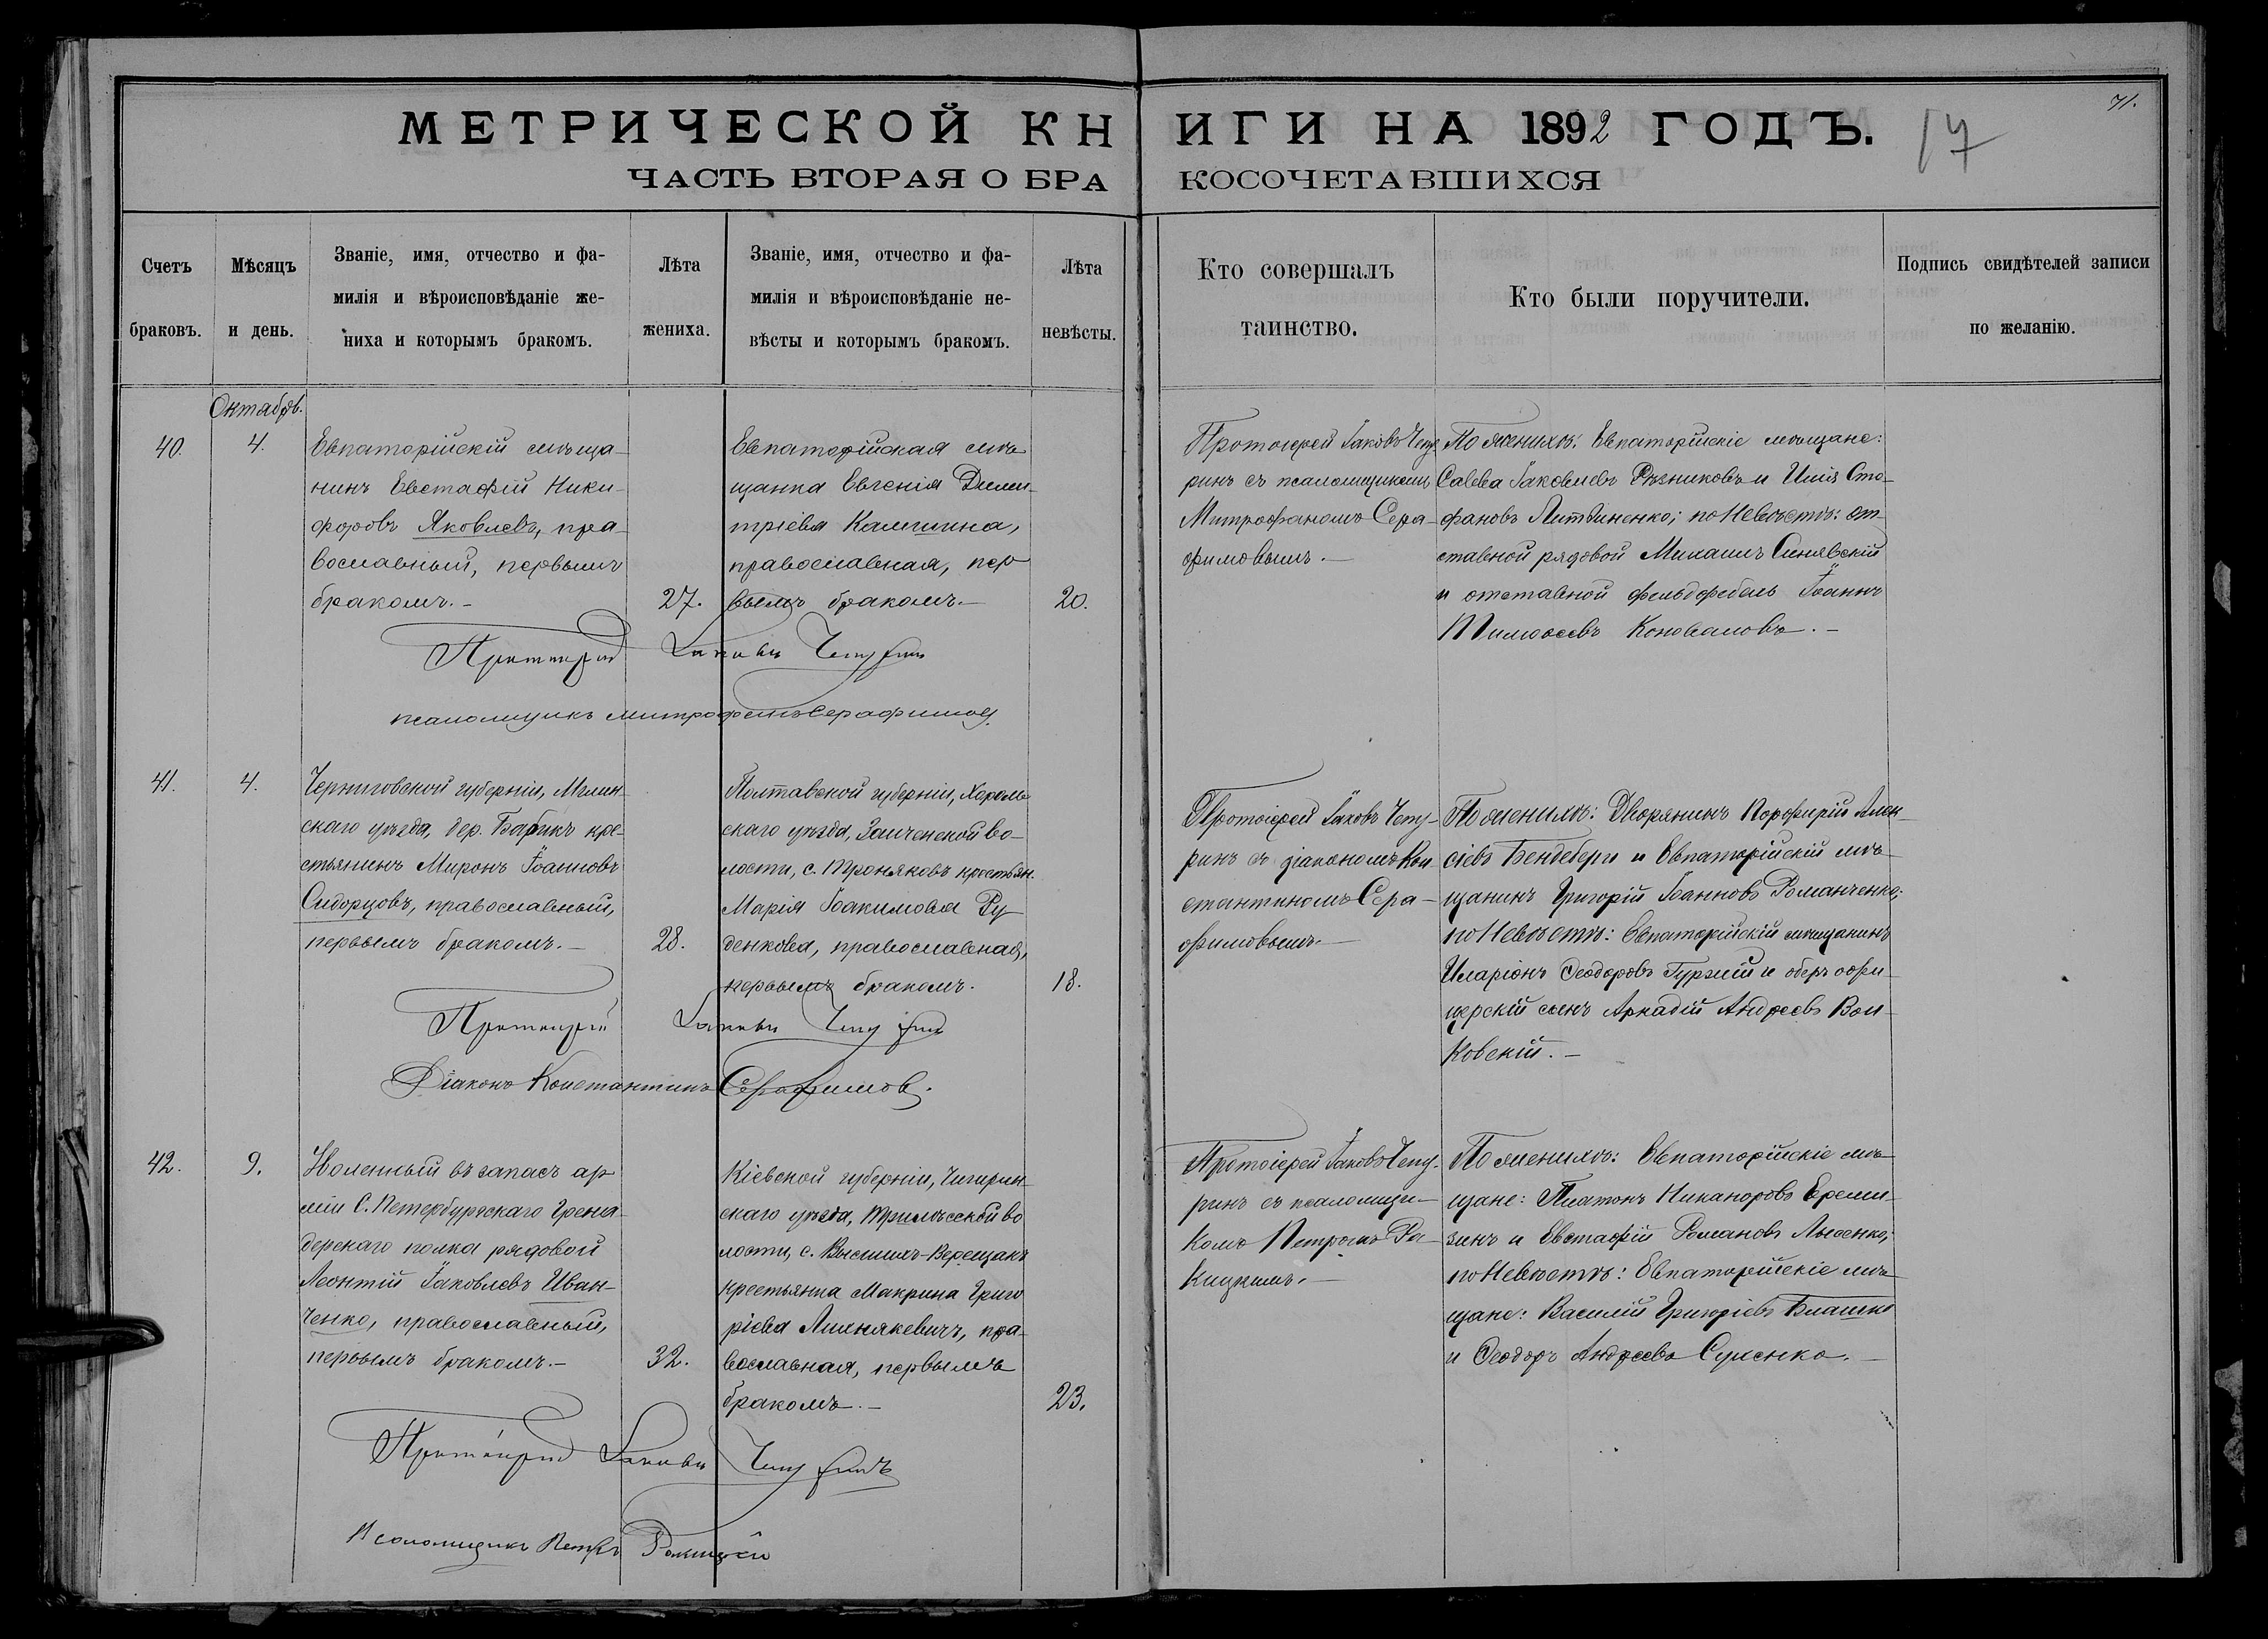 МЕТРИЧЕСКОЙ КНИГИ НА 1892 ГОДЪ.
17
71.
ЧАСТЬ ВТОРАЯ О БРАКОСОЧЕТАВШИХСЯ
Счетъ
браковъ.
Мѣсяцъ
и день.
Званіе, имя, отчество и фа-
милія и вѣроисповѣданіе же-
ниха и которымъ бракомъ.
Лѣта
жениха.
Званіе, имя, отчество и фа-
милія и вѣроисповѣданіе не-
вѣсты и которымъ бракомъ.
Лѣта
невѣсты.
Кто совершалъ
таинство.
Кто были поручители.
Подпись свидѣтелей записи
по желанію.
Октябрь.
40.
4.
Евпаторійскій мѣща-
нинъ Евстафій Ники-
форовъ Яковлевъ, пра-
вославный, первымъ
бракомъ.-
27.
Евпаторійская мѣ-
щанка Евгенія Дими-
тріева Калишина,
православная, пер
вымъ бракомъ.-
20.
Протоіерей Іаковъ Чепу
ринъ съ псаломщикомъ
Митрофаномъ Сера-
фимовымъ.-
По женихѣ: Евпаторійскіе мѣщане:
Савва Іаковлевъ Рѣзниковъ и Илія Сте-
фановъ Литвиненко; по невѣстѣ: от-
ставной рядовой Михаилъ Синявскій
и отставной фельдфебель Іоаннъ
Тимоѳеевъ Коноваловъ.-
Протоіерей Іаковъ Чепуринъ
псаломщикъ Митрофанъ Серафимовъ
41.
4.
Черниговской губерніи, Мглин-
скаго уѣзда, дер. кре-
стьянинъ Миронъ Іоанновъ
Сидорцовъ, православный,
первымъ бракомъ.-
28.
Полтавской губерніи, Хороль-
скаго уѣзда, во-
лости, с. крестьян.
Марія Іоакимова Ру-
денкова, православная,
первымъ бракомъ.
18.
Протоіерей Іаковъ Чепу-
ринъ съ діакономъ Кон-
стантиномъ Сера-
фимовымъ.-
По женихѣ: Дворянинъ Порфирій Алек-
сіевъ и Евпаторійскій мѣ-
щанинъ Григорій Іоанновъ Романченко;
по невѣстѣ: Евпаторійскій мѣщанинъ
Иларіонъ Ѳеодоровъ и оберъ офи-
церскій сынъ Аркадій Андреевъ Вой-
ковскій.-
Протоіерей Іаковъ Чепуринъ
Діаконъ Константинъ Серафимовъ.
42.
9.
Уволенный въ запасъ ар
міи С. Петербургскаго Грена-
дерскаго полка рядовой
Леонтій Іаковлевъ Иван-
ченко, православный,
первымъ бракомъ.-
32.
Кіевской губерніи, Чигирин-
скаго уѣзда, Трилѣсской во
лости, с. Высшихъ-Верещакъ
крестьянка Макрина Григо
ріева Лихнякевичъ, пра-
вославная, первымъ
бракомъ.-
23.
Протоіерей Іаковъ Чепу-
ринъ съ псаломщи-
комъ Петромъ Ра-
кицкимъ.-
По женихѣ: Евпаторійскіе мѣ-
щане: Платонъ Никаноровъ Ереми-
зинъ и Евстафій Романовъ Лысенко;
по невѣстѣ: Евпаторійскіе мѣ-
щане: Василій Григоріевъ Влашко
и Ѳеодоръ Андреевъ Супенко.-
Протоіерей Іаковъ Чепуринъ
Псаломщикъ Петръ Ракицкій